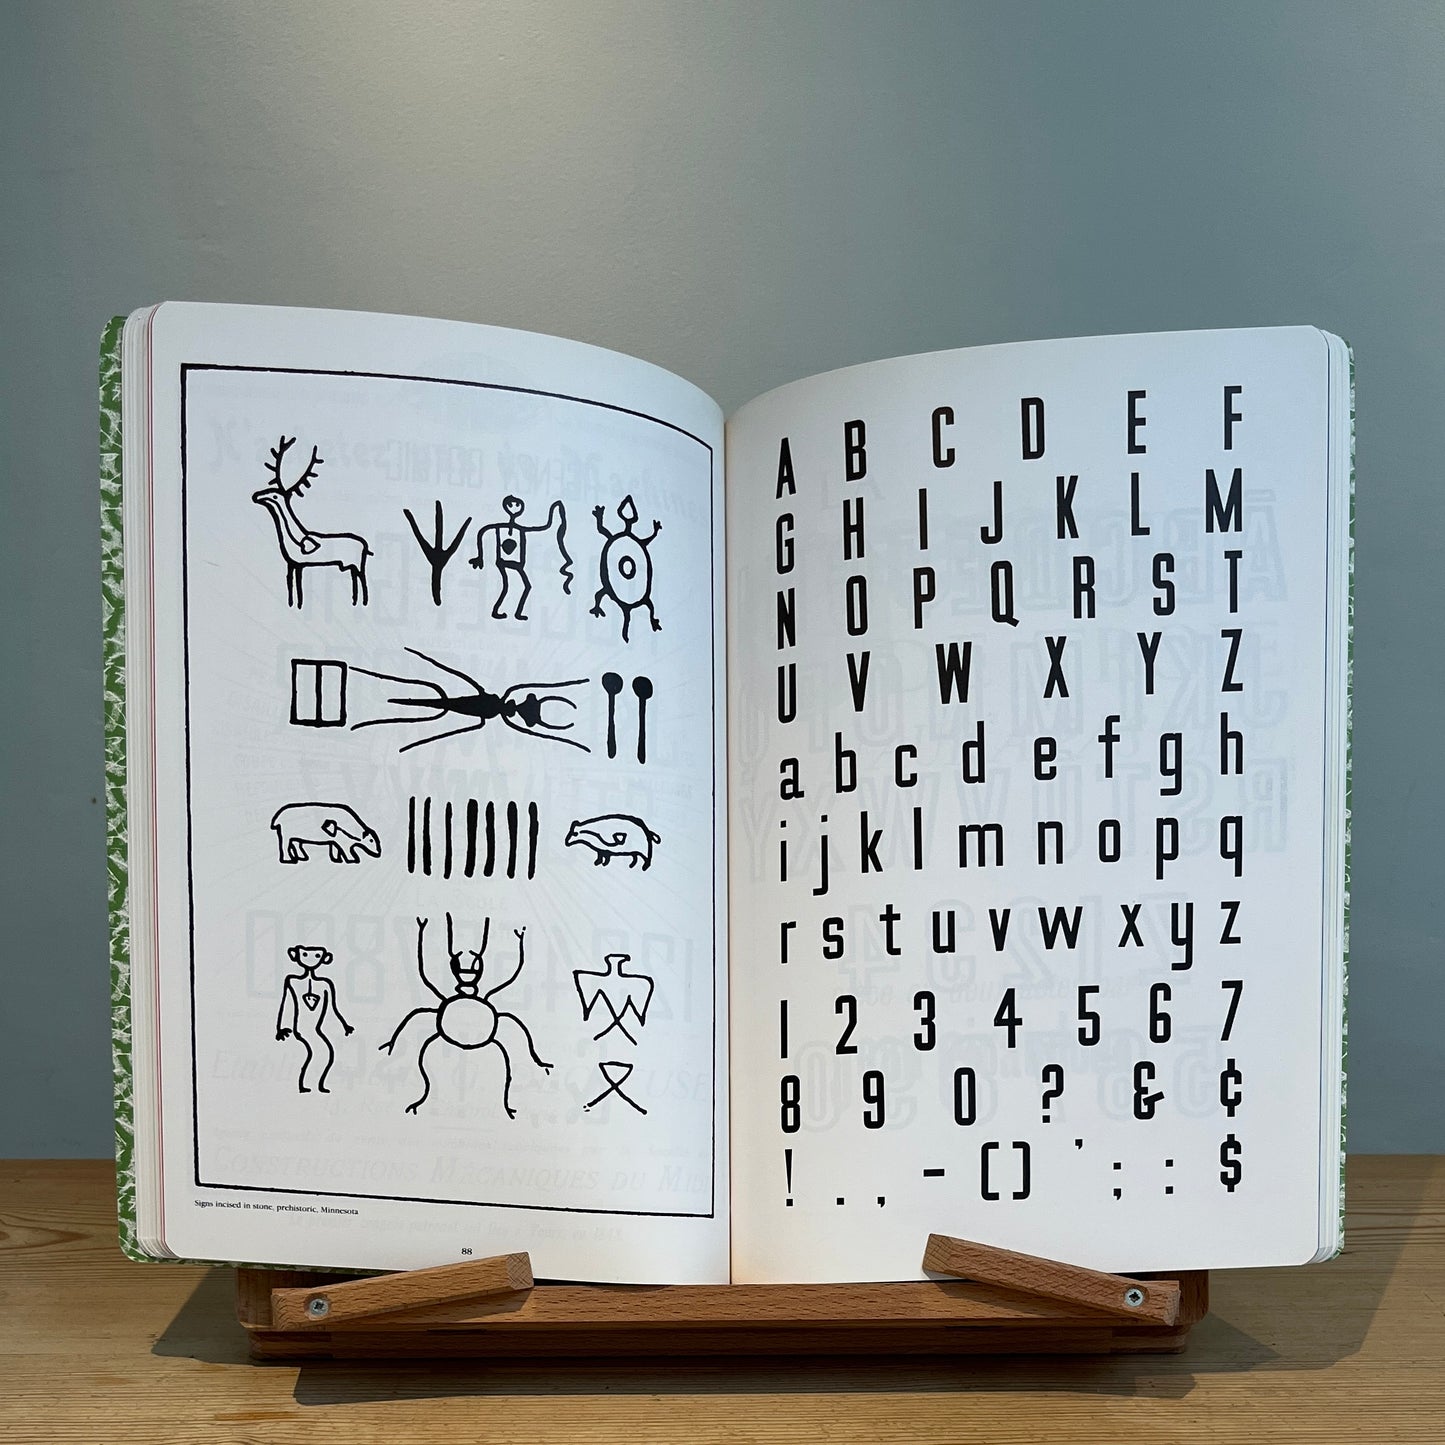 Signs incised in stone, prehistoric, Minnesota
88
A B C D E F
G H I J K L M
N O P Q R S T
U V W X Y Z
a b c d e f g h
i j k l m n o p q
r s t u v w x y z
1 2 3 4 5 6 7
8 9 0 ? & ¢
! . , - [ ] ' ; : $